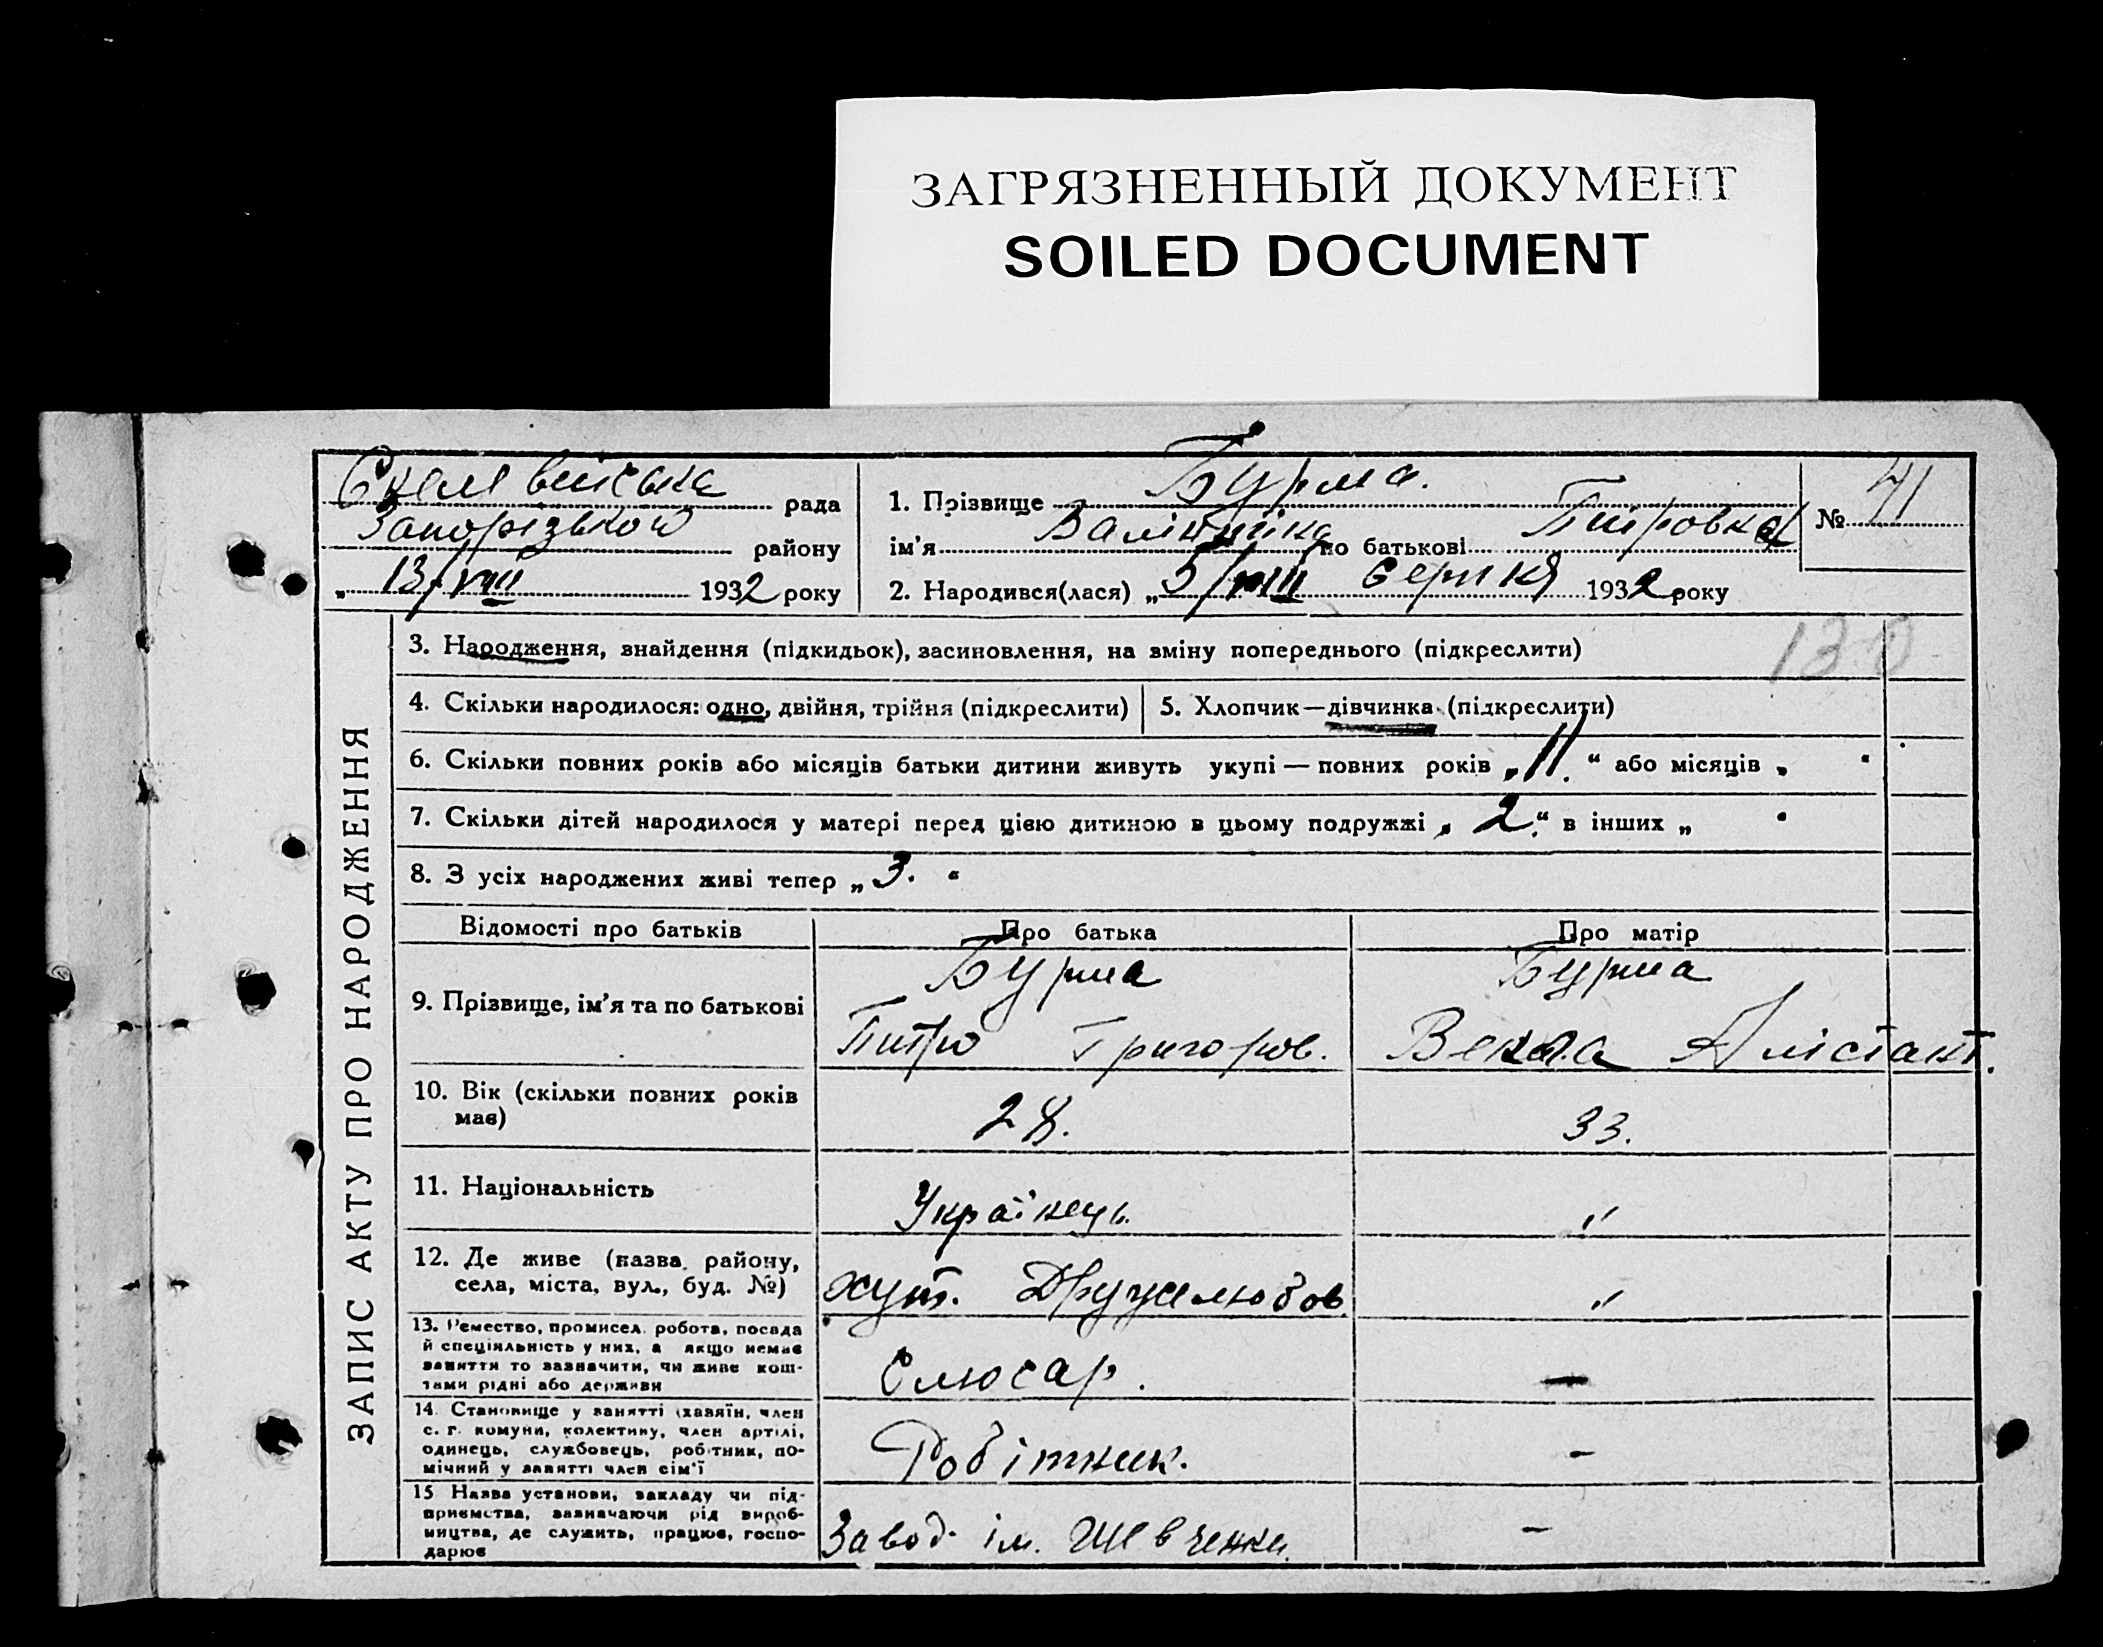 ЗАГРЯЗНЕННЫЙ ДОКУМЕНТ
SOILED DOCUMENT
рада
Запорізького району
„13/VIII 1932 року
1. Прізвище Бурма.
ім'я Валінтина по батькові Питровна
№ 41
2. Народився(лася) „5/VIII серпня 1932 року
ЗАПИС АКТУ ПРО НАРОДЖЕННЯ
3. Народження, знайдення (підкидьок), засиновлення, на зміну попереднього (підкреслити)
130
4. Скільки народилося: одно, двійня, трійня (підкреслити)
5. Хлопчик—дівчинка (підкреслити)
6. Скільки повних років або місяців батьки дитини живуть укупі — повних років „11.“ або місяців „ “
7. Скільки дітей народилося у матері перед цією дитиною в цьому подружжі „2“ в інших „ “
8. З усіх народжених живі тепер „3.“
Відомості про батьків
Про батька
Про матір
9. Прізвище, ім'я та по батькові
Бурма
Питро Григоров.
Бурма
Векла
10. Вік (скільки повних років
має)
28.
33.
11. Національність
Українець
"
12. Де живе (назва району,
села, міста, вул., буд. №)
хут. Дружелюбов.
"
13. Ремество, промисел, робота, посада
й спеціяльність у них, а якщо немає
заняття то зазначити, чи живе кош-
тами рідні або держави
Слюсар.
—
14. Становище у занятті (хазяїн, член
с. г. комуни, колективу, член артілі,
одинець, службовець, робітник, по-
мічний у занятті член сім'ї
Робітник.
–
15 Назва установи, закладу чи під-
приємства, зазначаючи рід вироб-
ництва, де служить, працює, госпо-
дарює
Завод ім. Шевченки.
–